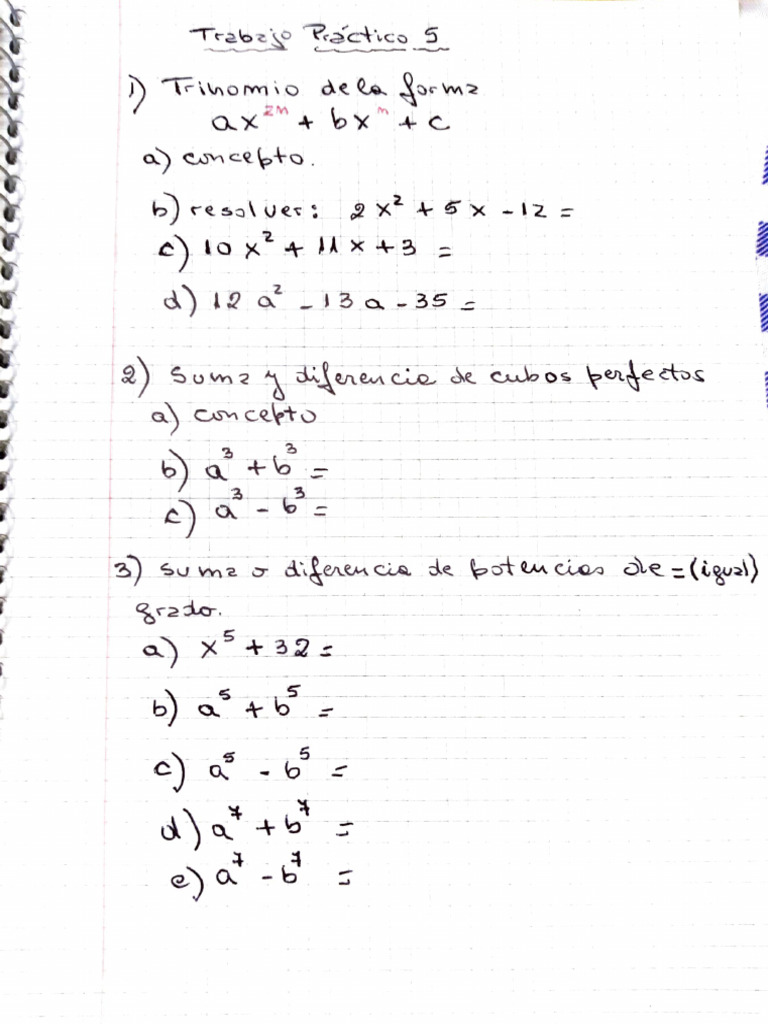 Trabajo Práctico 5
1) Trinomio de la forma
ax²ⁿ + bxⁿ + c
a) concepto.
b) resolver: 2x² + 5x - 12 =
c) 10x² + 11x + 3 =
d) 12a² - 13a - 35 =
2) Suma y diferencia de cubos perfectos
a) concepto
b) a³ + b³ =
c) a³ - b³ =
3) suma o diferencia de potencias de = (igual)
grado.
a) x⁵ + 32 =
b) a⁵ + b⁵ =
c) a⁵ - b⁵ =
d) a⁷ + b⁷ =
e) a⁷ - b⁷ =